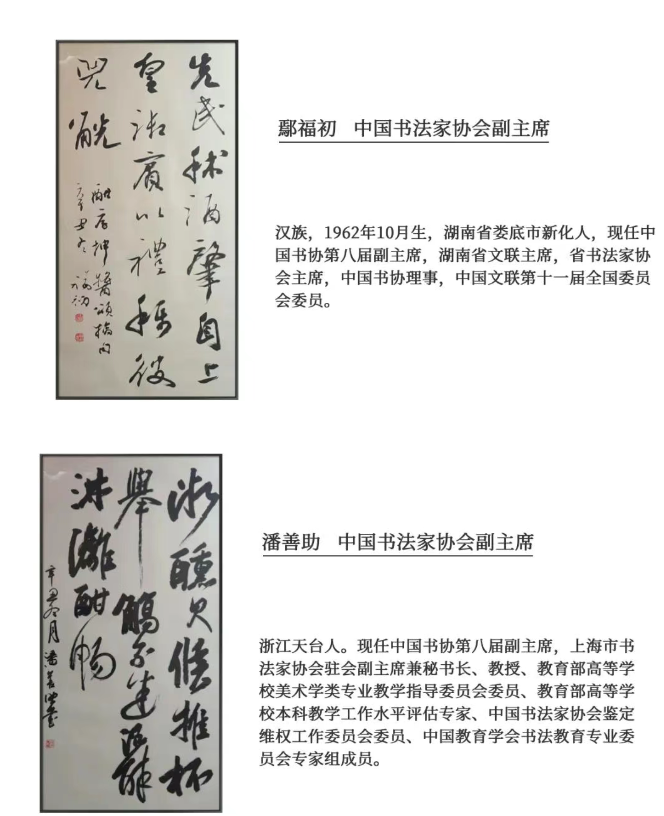 先民秫酒肇自上
皇 賓以禮稱彼
兕觥
辛丑冬 福初
鄢福初 中国书法家协会副主席
汉族，1962年10月生，湖南省娄底市新化人，现任中
国书协第八届副主席，湖南省文联主席，省书法家协
会主席，中国书协理事，中国文联第十一届全国委员
会委员。
醺 推杯
舉觴
淋灕酣暢
辛丑冬月潘善助書
潘善助 中国书法家协会副主席
浙江天台人。现任中国书协第八届副主席，上海市书
法家协会驻会副主席兼秘书长、教授、教育部高等学
校美术学类专业教学指导委员会委员、教育部高等学
校本科教学工作水平评估专家、中国书法家协会鉴定
维权工作委员会委员、中国教育学会书法教育专业委
员会专家组成员。